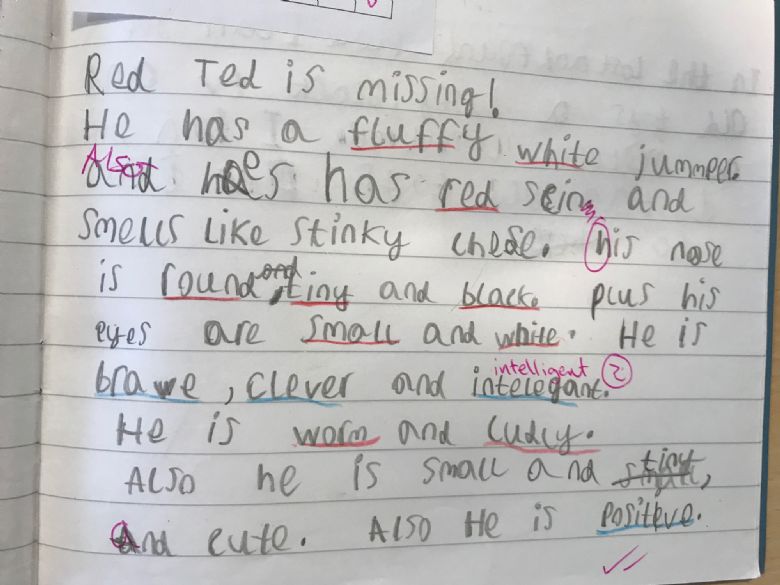 Red Ted is missing!
He has a fluffy white jummper.
Also has red scin and
smells like stinky chese. his nose
and
is round, tiny and black. plus his
eyes are small and white. He is
intelligent 2
brave, clever and intelegant.
He is worm and cudly.
tiny,
Also he is small and
And cute. Also He is positeve.